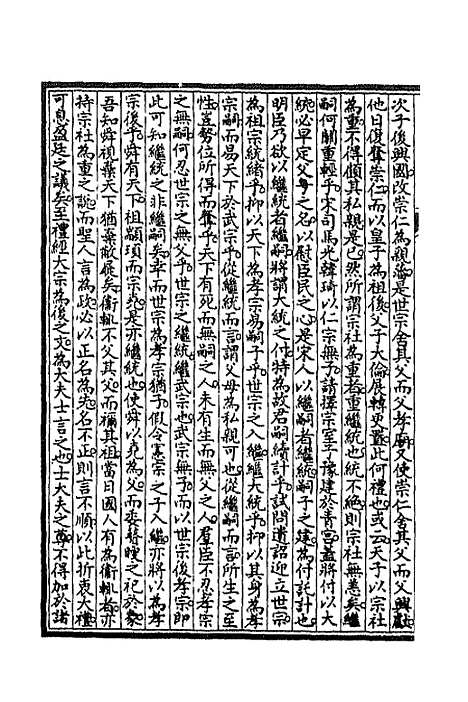 次子後興國改崇仁為親藩是世宗舍其父而父孝廟又使崇仁舍其父而父興獻
他日復奪崇仁而以皇子為祖後父子大倫展轉更置此何禮也或云天子以宗社
為重不得顧其私親是已然所謂宗社為重者重繼統也統不絕則宗社無恙矣繼
嗣何關重輕乎宋司馬光韓琦以仁宗無子請擇宗室子豫建於青宮蓋將付以大
統必早定父母之名以慰臣民之心是宋人以繼嗣者繼統嗣子之建為付託計也
明臣乃欲以繼統者繼嗣將謂大統之付特為故君嗣續計乎試問遺詔迎立世宗
為祖宗統緒乎抑以天下為孝宗易嗣子乎世宗之入繼繼大統乎抑以其身為孝
宗嗣而易天下於武宗乎從繼統而言謂父母為私親可也從繼嗣而言所生之至
性豈勢位所得而奪乎天下有死而無嗣之人未有生而無父之人羣臣不忍孝宗
之無嗣何忍世宗之無父乎世宗之繼統繼武宗也武宗無子而以世宗後孝宗即
此可知繼統之非繼嗣矣幸而世宗為孝宗猶子假令憲宗之子入繼亦將以為孝
宗後乎舜有天下祖顓頊而宗堯是亦繼統也使舜以堯為父而委瞽瞍之祀於象
吾知舜視棄天下猶棄敝屣矣衞輒不父其父而禰其祖當日國人有為衞輒者亦
持宗社為重之說而聖人言為政必以正名為先名不正則言不順以此折衷大禮
可息盈廷之議矣至禮經大宗為後之文為大夫士言之也士大夫之尊不得加於諸